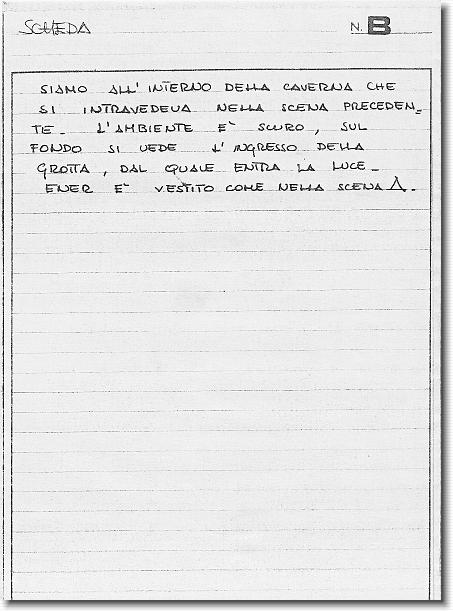 SCHEDA
N. B
SIAMO ALL'INTERNO DELLA CAVERNA CHE
SI INTRAVEDEVA NELLA SCENA PRECEDEN_
TE_ L'AMBIENTE E' SCURO, SUL
FONDO SI VEDE L'INGRESSO DELLA
GROTTA, DAL QUALE ENTRA LA LUCE_
ENER E' VESTITO COME NELLA SCENA A.